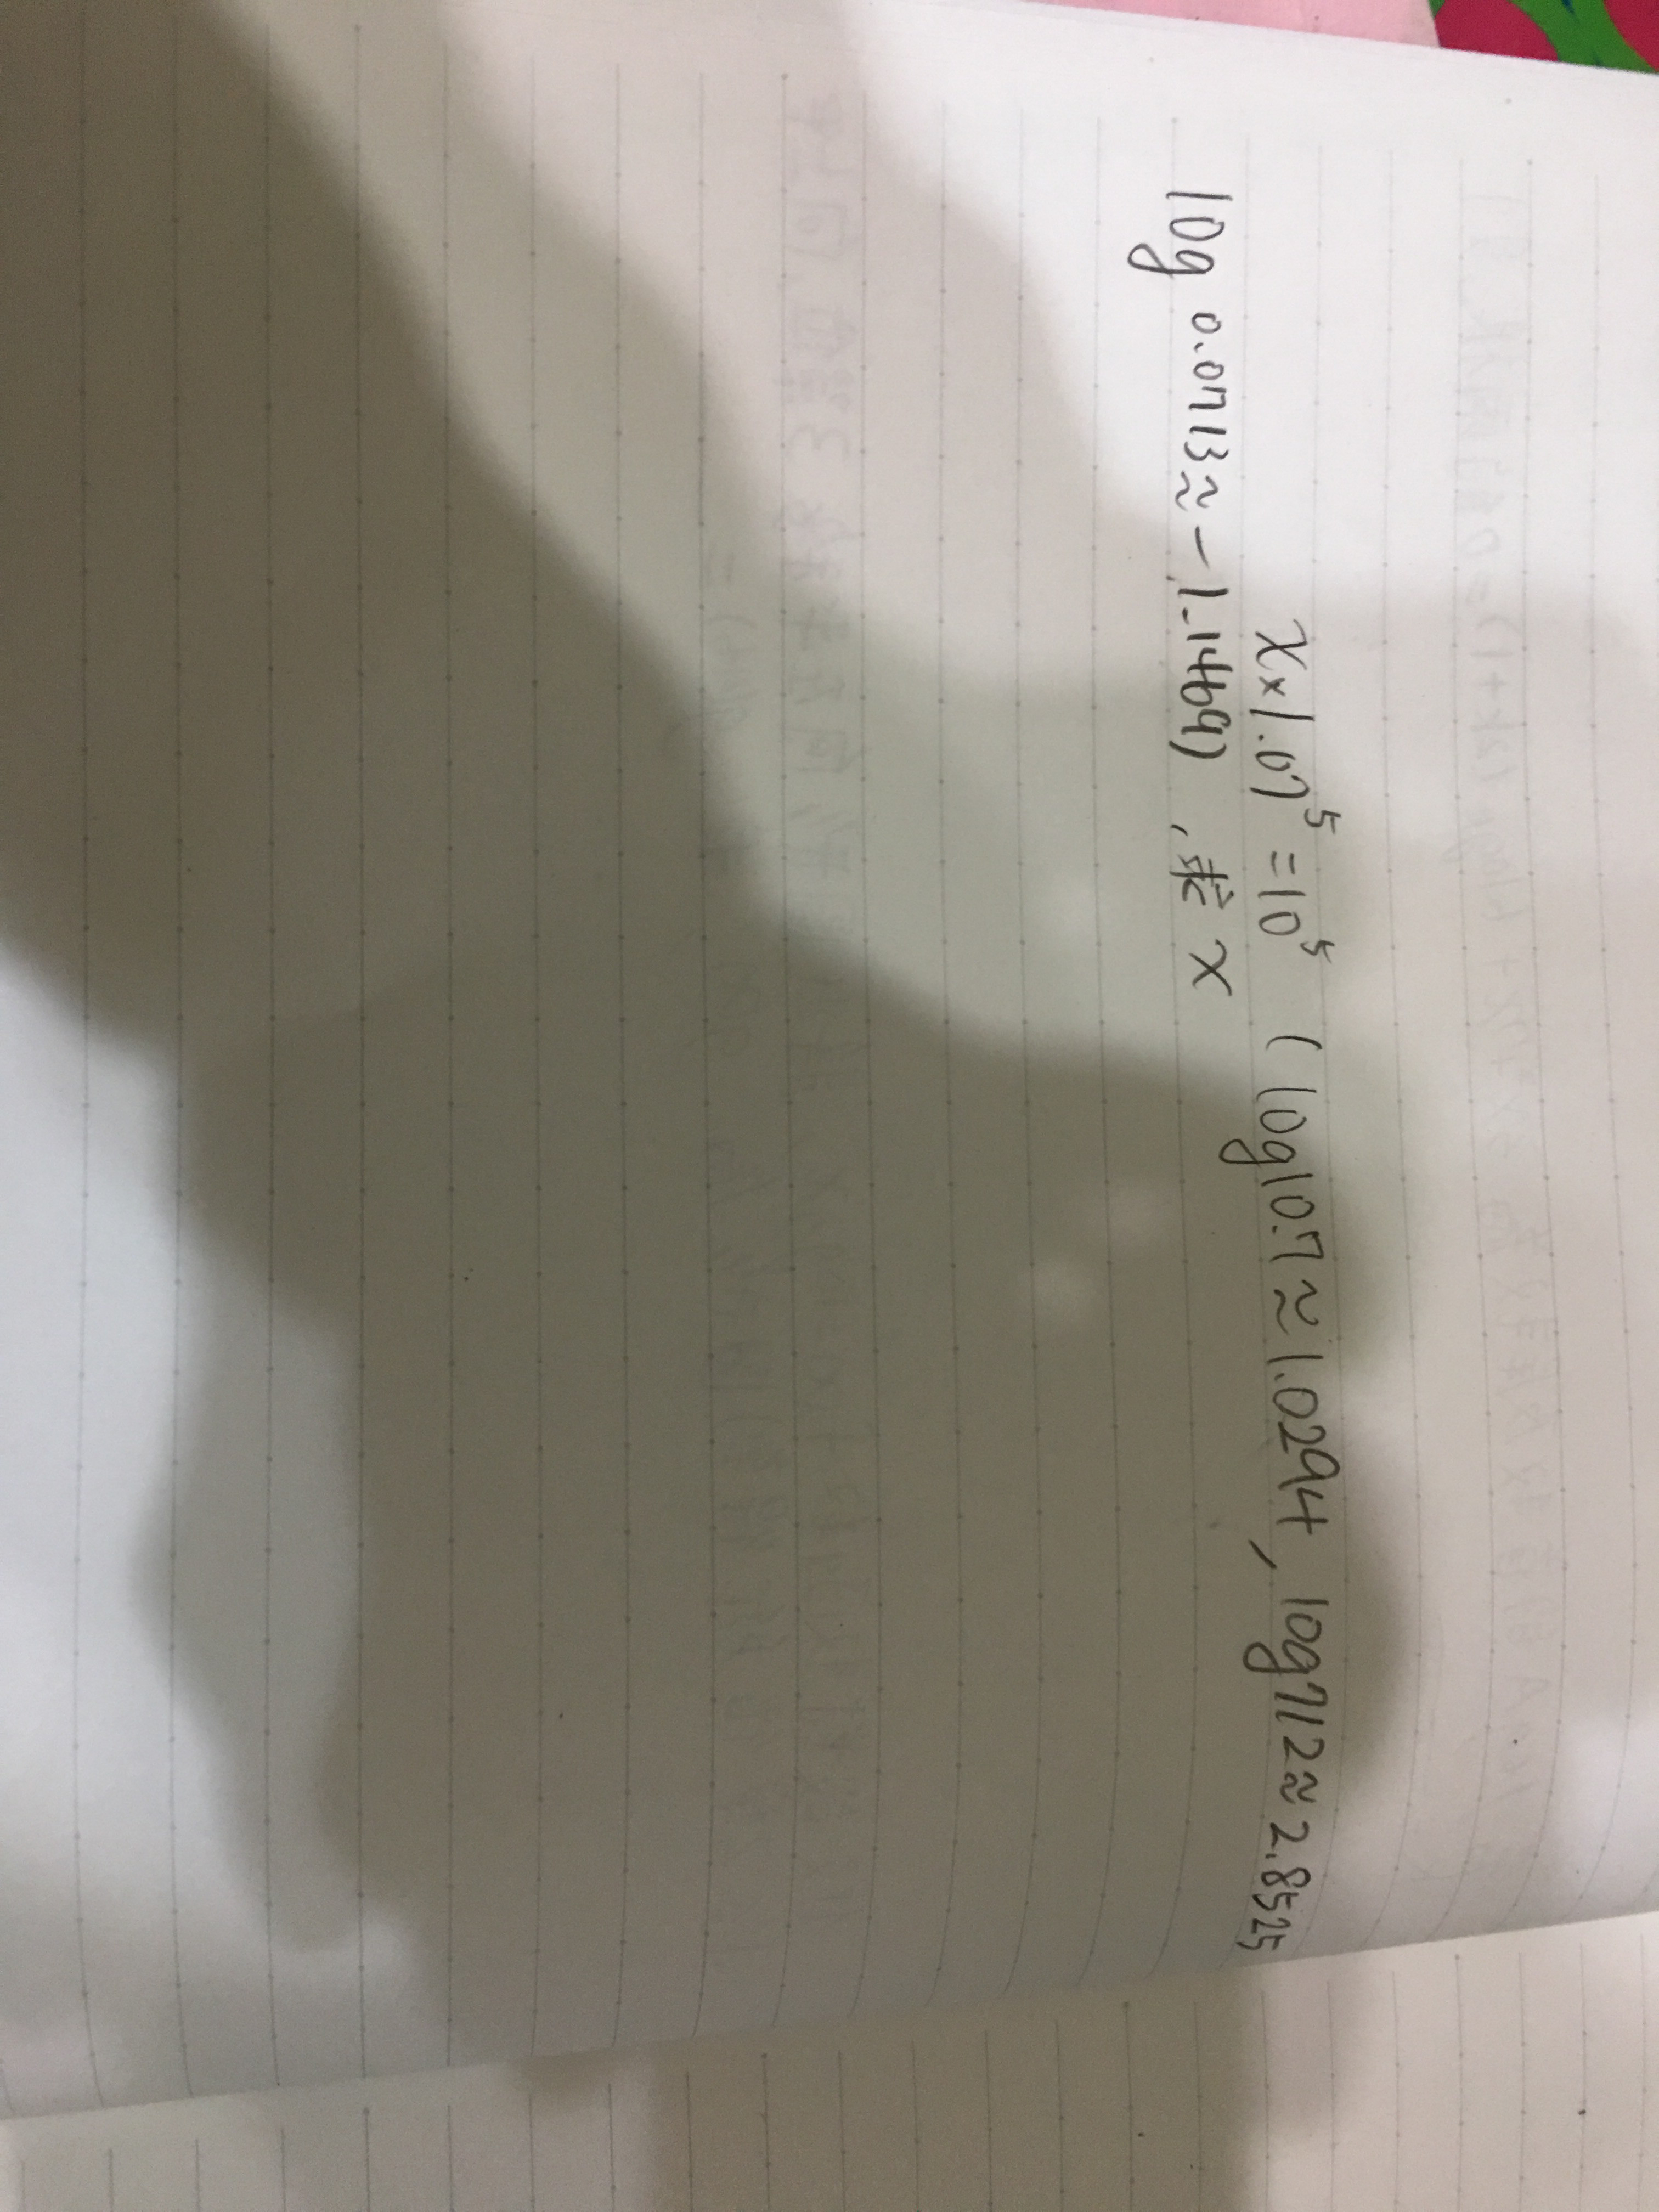 x×1.07⁵=10⁵ (log10.7≈1.0294, log712≈2.8525
log 0.0713≈-1.1469),求x